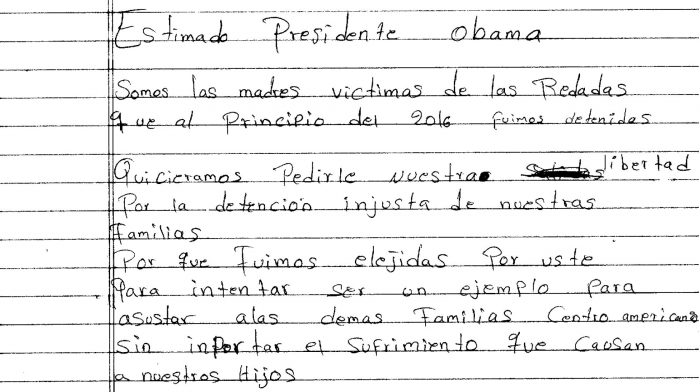 Estimado Presidente Obama
Somos las madres victimas de las Redadas
que al Principio del 2016 fuimos detenidas
Quicieramos Pedirle nuestra libertad
Por la detencion injusta de nuestras
Familias
Por que Fuimos elejidas Por uste
Para intentar ser un ejemplo Para
asustar alas demas Familias Centro americana
sin inportar el Sufrimiento que Causan
a nuestros Hijos